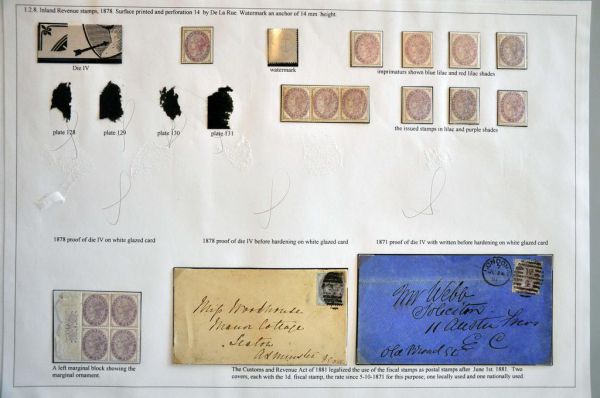 1.2.8. Inland Revenue stamps, 1878. Surface printed and perforation 14 by De La Rue. Watermark an anchor of 14 mm height.
Die IV
watermark
imprimaturs shown blue lilac and red lilac shades
plate 128
plate 129
plate 130
plate 131
the issued stamps in lilac and purple shades
1878 proof of die IV on white glazed card
1878 proof of die IV before hardening on white glazed card
1871 proof of die IV with written before hardening on white glazed card
Miss Woodhouse
Manor Cottage
Seaton
Axminster
LONDON
Webb
Solicitor
11 Austin Friars
E C
Old Broad St
A left marginal block showing the
marginal ornament.
The Customs and Revenue Act of 1881 legalized the use of the fiscal stamps as postal stamps after June 1st. 1881. Two
covers, each with the 1d. fiscal stamp, the rate since 5-10-1871 for this purpose, one locally used and one nationally used.